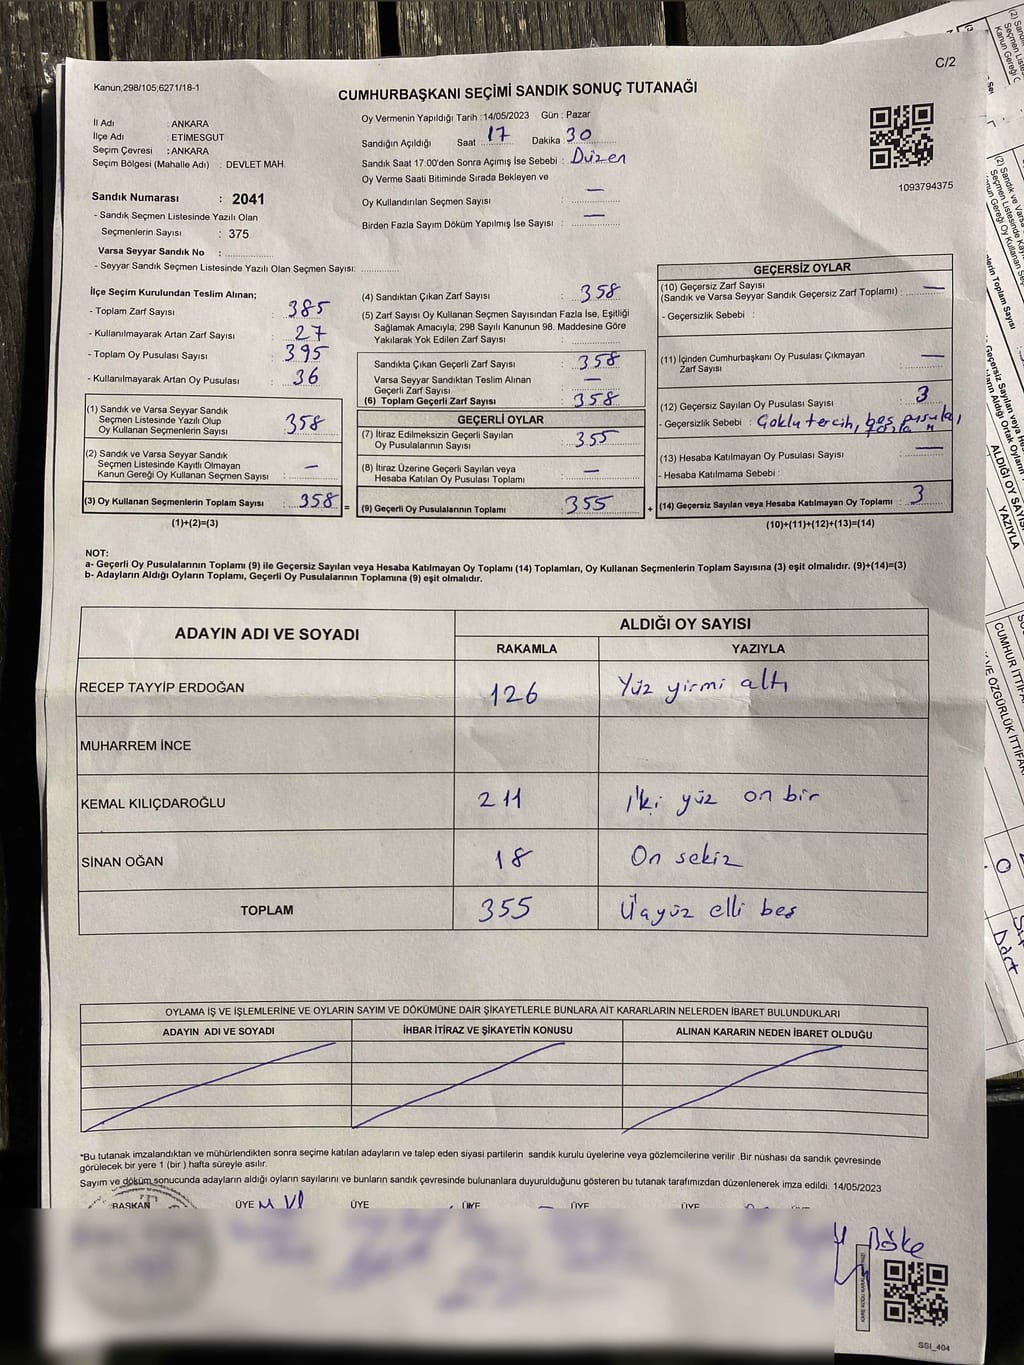 C/2
Kanun,298/105,6271/18-1
CUMHURBAŞKANI SEÇİMİ SANDIK SONUÇ TUTANAĞI
İl Adı : ANKARA
İlçe Adı : ETİMESGUT
Seçim Çevresi : ANKARA
Seçim Bölgesi (Mahalle Adı) : DEVLET MAH.
Oy Vermenin Yapıldığı Tarih :14/05/2023 Gün : Pazar
Sandığın Açıldığı Saat 17 Dakika 30
Sandık Saat 17:00'den Sonra Açımış İse Sebebi : Düzen
Oy Verme Saati Bitiminde Sırada Bekleyen ve
Oy Kullandırılan Seçmen Sayısı : —
Birden Fazla Sayım Döküm Yapılmış İse Sayısı : —
1093794375
Sandık Numarası : 2041
- Sandık Seçmen Listesinde Yazılı Olan
Seçmenlerin Sayısı : 375
Varsa Seyyar Sandık No :
- Seyyar Sandık Seçmen Listesinde Yazılı Olan Seçmen Sayısı:
İlçe Seçim Kurulundan Teslim Alınan;
- Toplam Zarf Sayısı : 385
- Kullanılmayarak Artan Zarf Sayısı : 27
- Toplam Oy Pusulası Sayısı : 395
- Kullanılmayarak Artan Oy Pusulası : 36
(1) Sandık ve Varsa Seyyar Sandık
Seçmen Listesinde Yazılı Olup
Oy Kullanan Seçmenlerin Sayısı : 358
(2) Sandık ve Varsa Seyyar Sandık
Seçmen Listesinde Kayıtlı Olmayan
Kanun Gereği Oy Kullanan Seçmen Sayısı : —
(3) Oy Kullanan Seçmenlerin Toplam Sayısı : 358 =
(1)+(2)=(3)
(4) Sandıktan Çıkan Zarf Sayısı : 358
(5) Zarf Sayısı Oy Kullanan Seçmen Sayısından Fazla İse, Eşitliği
Sağlamak Amacıyla; 298 Sayılı Kanunun 98. Maddesine Göre
Yakılarak Yok Edilen Zarf Sayısı :
Sandıkta Çıkan Geçerli Zarf Sayısı : 358
Varsa Seyyar Sandıktan Teslim Alınan
Geçerli Zarf Sayısı : —
(6) Toplam Geçerli Zarf Sayısı : 358
GEÇERLİ OYLAR
(7) İtiraz Edilmeksizin Geçerli Sayılan
Oy Pusulalarının Sayısı : 355
(8) İtiraz Üzerine Geçerli Sayılan veya
Hesaba Katılan Oy Pusulası Toplamı : —
(9) Geçerli Oy Pusulalarının Toplamı : 355 +
GEÇERSİZ OYLAR
(10) Geçersiz Zarf Sayısı
(Sandık ve Varsa Seyyar Sandık Geçersiz Zarf Toplamı) : —
- Geçersizlik Sebebi :
(11) İçinden Cumhurbaşkanı Oy Pusulası Çıkmayan
Zarf Sayısı : —
(12) Geçersiz Sayılan Oy Pusulası Sayısı : 3
- Geçersizlik Sebebi : Çoklu tercih, boş pusula,
(13) Hesaba Katılmayan Oy Pusulası Sayısı : —
- Hesaba Katılmama Sebebi :
(14) Geçersiz Sayılan veya Hesaba Katılmayan Oy Toplamı : 3
(10)+(11)+(12)+(13)=(14)
NOT:
a- Geçerli Oy Pusulalarının Toplamı (9) ile Geçersiz Sayılan veya Hesaba Katılmayan Oy Toplamı (14) Toplamları, Oy Kullanan Seçmenlerin Toplam Sayısına (3) eşit olmalıdır. (9)+(14)=(3)
b- Adayların Aldığı Oyların Toplamı, Geçerli Oy Pusulalarının Toplamına (9) eşit olmalıdır.
ADAYIN ADI VE SOYADI
ALDIĞI OY SAYISI
RAKAMLA YAZIYLA
RECEP TAYYİP ERDOĞAN 126 Yüz yirmi altı
MUHARREM İNCE
KEMAL KILIÇDAROĞLU 211 İki yüz on bir
SİNAN OĞAN 18 On sekiz
TOPLAM 355 Üçyüz elli beş
OYLAMA İŞ VE İŞLEMLERİNE VE OYLARIN SAYIM VE DÖKÜMÜNE DAİR ŞİKAYETLERLE BUNLARA AİT KARARLARIN NELERDEN İBARET BULUNDUKLARI
ADAYIN ADI VE SOYADI İHBAR İTİRAZ VE ŞİKAYETİN KONUSU ALINAN KARARIN NEDEN İBARET OLDUĞU
*Bu tutanak imzalandıktan ve mühürlendikten sonra seçime katılan adayların ve talep eden siyasi partilerin sandık kurulu üyelerine veya gözlemcilerine verilir .Bir nüshası da sandık çevresinde
görülecek bir yere 1 (bir ) hafta süreyle asılır.
Sayım ve döküm sonucunda adayların aldığı oyların sayılarını ve bunların sandık çevresinde bulunanlara duyurulduğunu gösteren bu tutanak tarafımızdan düzenlenerek imza edildi. 14/05/2023
BAŞKAN ÜYE ÜYE ÜYE ÜYE ÜYE ÜYE
Böke
SSI_404